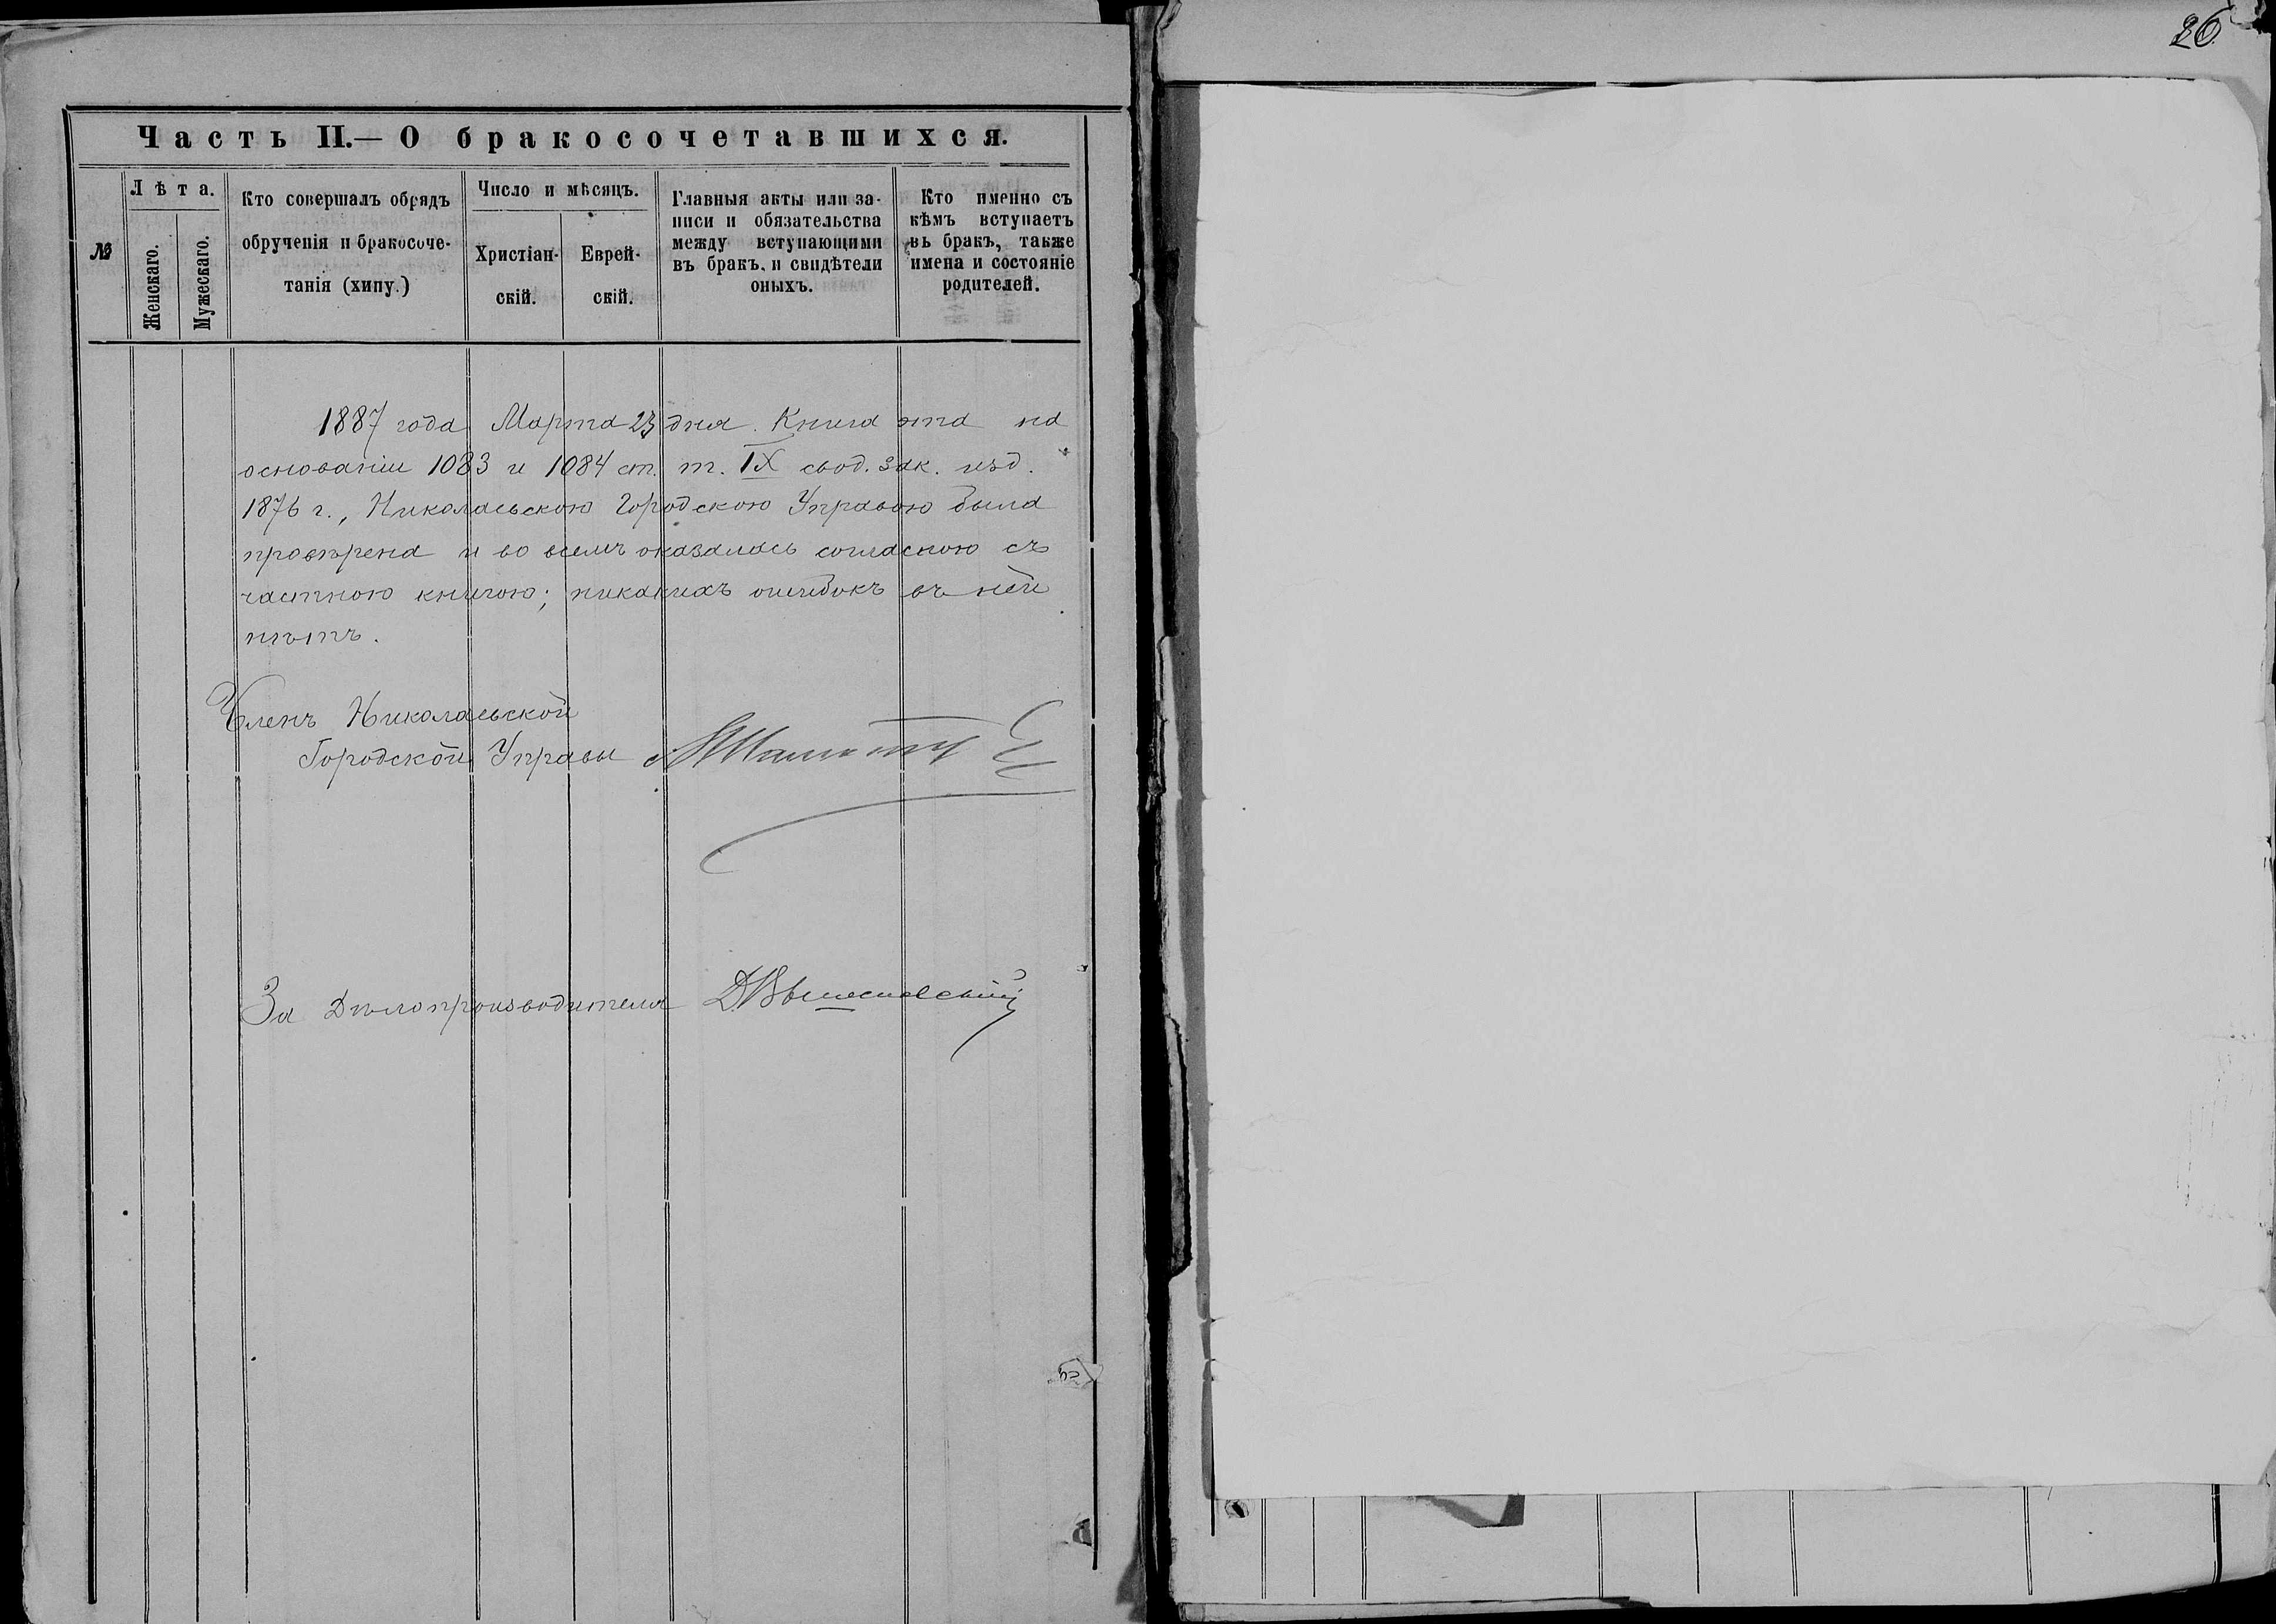 26
Часть II.— О бракосочетавшихся.
№
Лѣта.
Женскаго.
Мужескаго.
Кто совершалъ обрядъ
обрученія и бракосоче-
танія (хипу.)
Число и мѣсяцъ.
Христіан-
скій.
Еврей-
скій.
Главныя акты или за-
писи и обязательства
между вступающими
въ бракъ, и свидѣтели
оныхъ.
Кто именно съ
кѣмъ вступаетъ
въ бракъ, также
имена и состояніе
родителей.
1887 года Марта 23 дня. Книга эта на
основаніи 1083 и 1084 ст. т. IX свод. зак. изд.
1876 г., Николаевскою Городскою Управою была
провѣрена и во всемъ оказалась согласною съ
частною книгою; никакихъ ошибокъ въ ней
нѣтъ.
Членъ Николаевской
Городской Управы
За Дѣлопроизводителя